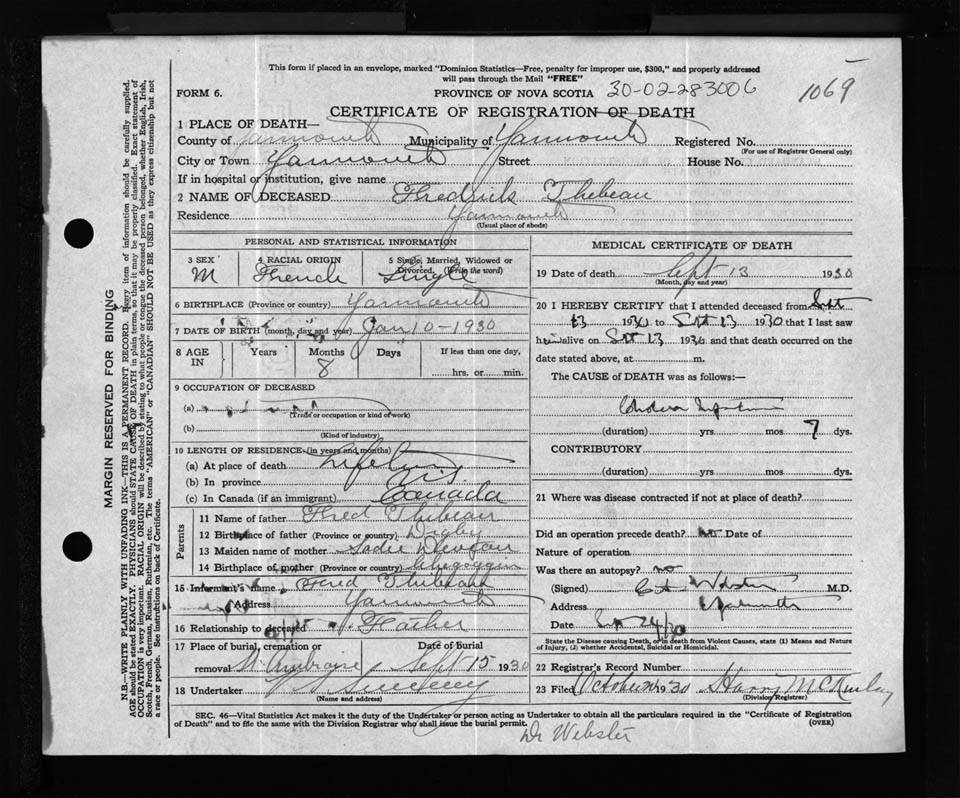 This form if placed in an envelope, marked "Dominion Statistics—Free, penalty for improper use, $300," and properly addressed
will pass through the Mail "FREE"
FORM 6. PROVINCE OF NOVA SCOTIA 30-02-283006 1069
CERTIFICATE OF REGISTRATION OF DEATH
1 PLACE OF DEATH—
County of Yarmouth Municipality of Yarmouth Registered No.
(For use of Registrar General only)
City or Town Yarmouth Street House No.
If in hospital or institution, give name
2 NAME OF DECEASED Fredrick Thibeau
Residence Yarmouth
(Usual place of abode)
PERSONAL AND STATISTICAL INFORMATION
3 SEX 4 RACIAL ORIGIN 5 Single, Married, Widowed or
Divorced. (Write the word)
M French Single
6 BIRTHPLACE (Province or country) Yarmouth
7 DATE OF BIRTH (month, day and year) Jan 10-1930
8 AGE IN Years Months Days If less than one day,
8 hrs. or min.
9 OCCUPATION OF DECEASED
(a)
(Trade or occupation or kind of work)
(b)
(Kind of industry)
10 LENGTH OF RESIDENCE (in years and months)
(a) At place of death Lifetime
(b) In province
(c) In Canada (if an immigrant) Canada
Parents
11 Name of father Fred Thibeau
12 Birthplace of father (Province or country) Digby
13 Maiden name of mother Sadie
14 Birthplace of mother (Province or country)
15 Informant's name Fred Thibeau
Address Yarmouth
16 Relationship to deceased Father
17 Place of burial, cremation or Date of burial
removal St Ambrose Sept 15 1930
18 Undertaker Sweeny
(Name and address)
MEDICAL CERTIFICATE OF DEATH
19 Date of death Sept 13 1930
(Month, day and year)
20 I HEREBY CERTIFY that I attended deceased from Sept
13 1930 to Sept 13 1930 that I last saw
him alive on Sept 13 1930 and that death occurred on the
date stated above, at m.
The CAUSE of DEATH was as follows:—
Cholera Infantum
(duration) yrs mos 7 dys.
CONTRIBUTORY
(duration) yrs mos dys.
21 Where was disease contracted if not at place of death?
Did an operation precede death? no Date of
Nature of operation
Was there an autopsy? no
(Signed) Webster M.D.
Address Yarmouth
Date
State the Disease causing Death, or in death from Violent Causes, state (1) Means and Nature
of Injury, (2) whether Accidental, Suicidal or Homicidal.
22 Registrar's Record Number
23 Filed October 1930 Harry McKinlay
(Division Registrar)
SEC. 46—Vital Statistics Act makes it the duty of the Undertaker or person acting as Undertaker to obtain all the particulars required in the "Certificate of Registration
of Death" and to file the same with the Division Registrar who shall issue the burial permit. (OVER)
Dr Webster
MARGIN RESERVED FOR BINDING
N.B.—WRITE PLAINLY WITH UNFADING INK—THIS IS A PERMANENT RECORD. Every item of information should be carefully supplied.
AGE should be stated EXACTLY. PHYSICIANS should STATE CAUSE OF DEATH in plain terms, so that it may be properly classified. Exact statement of
OCCUPATION is very important. RACIAL ORIGIN will be described by stating to what people or tongue the deceased person belonged, whether English, Irish,
Scotch, French, German, Russian, Ruthenian, etc. The terms "AMERICAN" or "CANADIAN" SHOULD NOT BE USED as they express citizenship but not
a race or people. See instructions on back of Certificate.